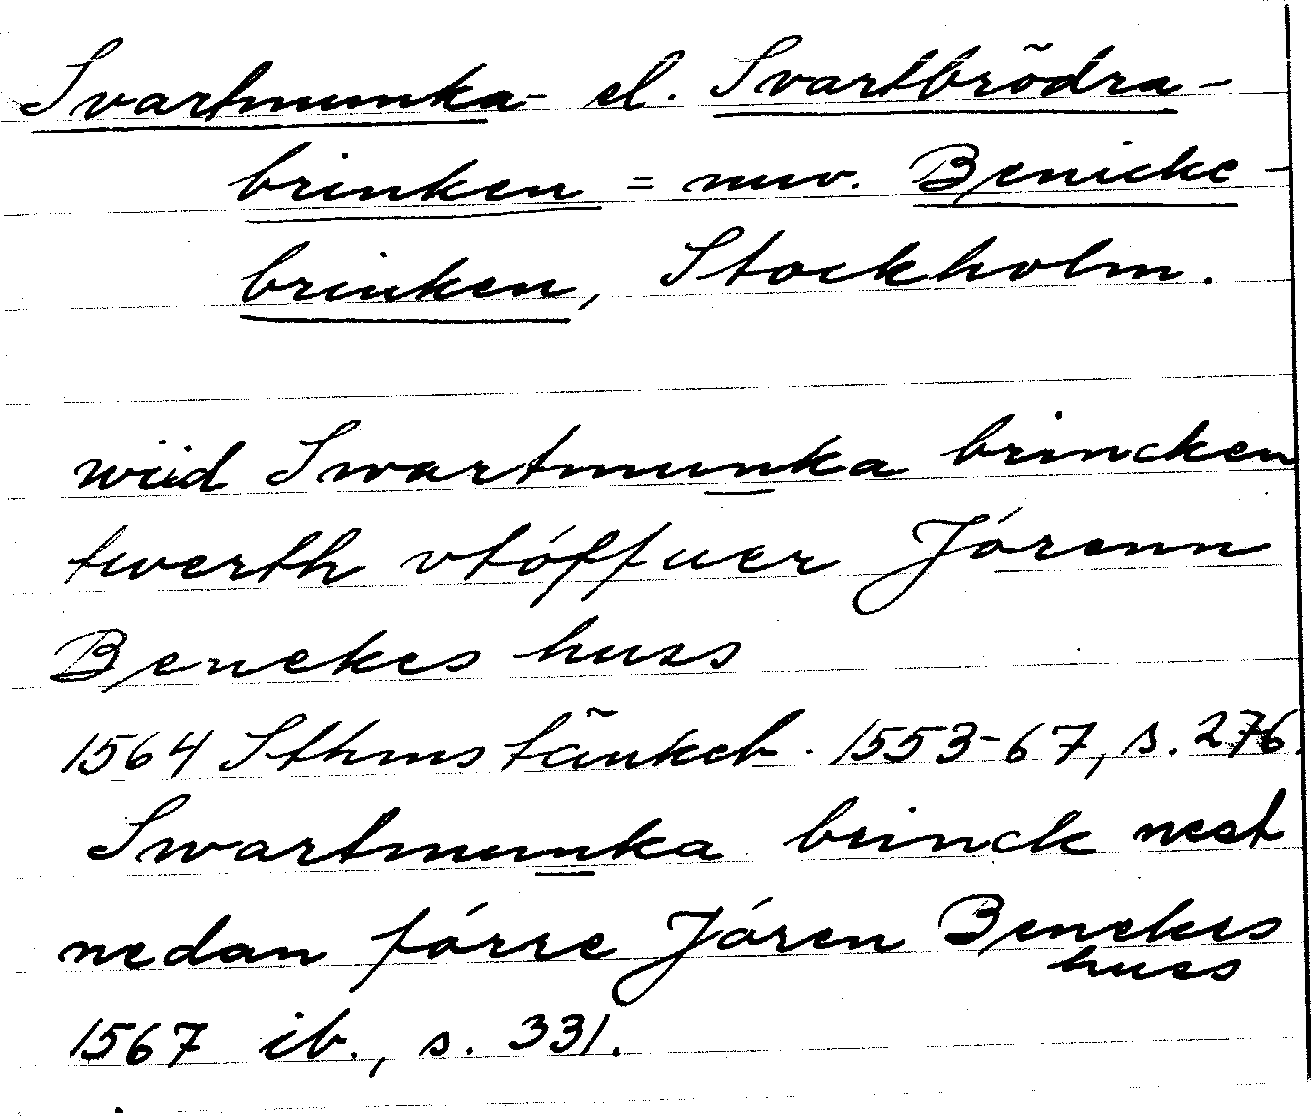 Svartmunka- el. Svartbrödra-
brinken = nuv. Benicke-
brinken, Stockholm.
wiid Swartmunka brincken
twerth vtóffuer Jórenn
Benekes huss
1564 Sthms tänkeb. 1553-67, s. 276.
Swartmunka brinck nest
nedan fórre Jóren Benekes
huss
1567 ib., s. 331.